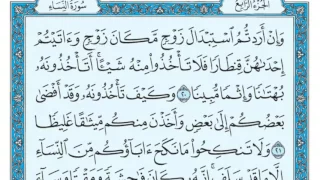 سُورَةُ النِّسَاءِ الجُزْءُ الرَّابِعُ
وَإِنْ أَرَدتُّمُ ٱسْتِبْدَالَ زَوْجٍ مَّكَانَ زَوْجٍ وَءَاتَيْتُمْ
إِحْدَىٰهُنَّ قِنطَارًا فَلَا تَأْخُذُوا۟ مِنْهُ شَيْـًٔا أَتَأْخُذُونَهُۥ
بُهْتَٰنًا وَإِثْمًا مُّبِينًا ٢٠ وَكَيْفَ تَأْخُذُونَهُۥ وَقَدْ أَفْضَىٰ
بَعْضُكُمْ إِلَىٰ بَعْضٍ وَأَخَذْنَ مِنكُم مِّيثَٰقًا غَلِيظًا
٢١ وَلَا تَنكِحُوا۟ مَا نَكَحَ ءَابَآؤُكُم مِّنَ ٱلنِّسَآءِ
إِلَّا مَا قَدْ سَلَفَ إِنَّهُۥ كَانَ فَٰحِشَةً وَمَقْتًا وَسَآءَ